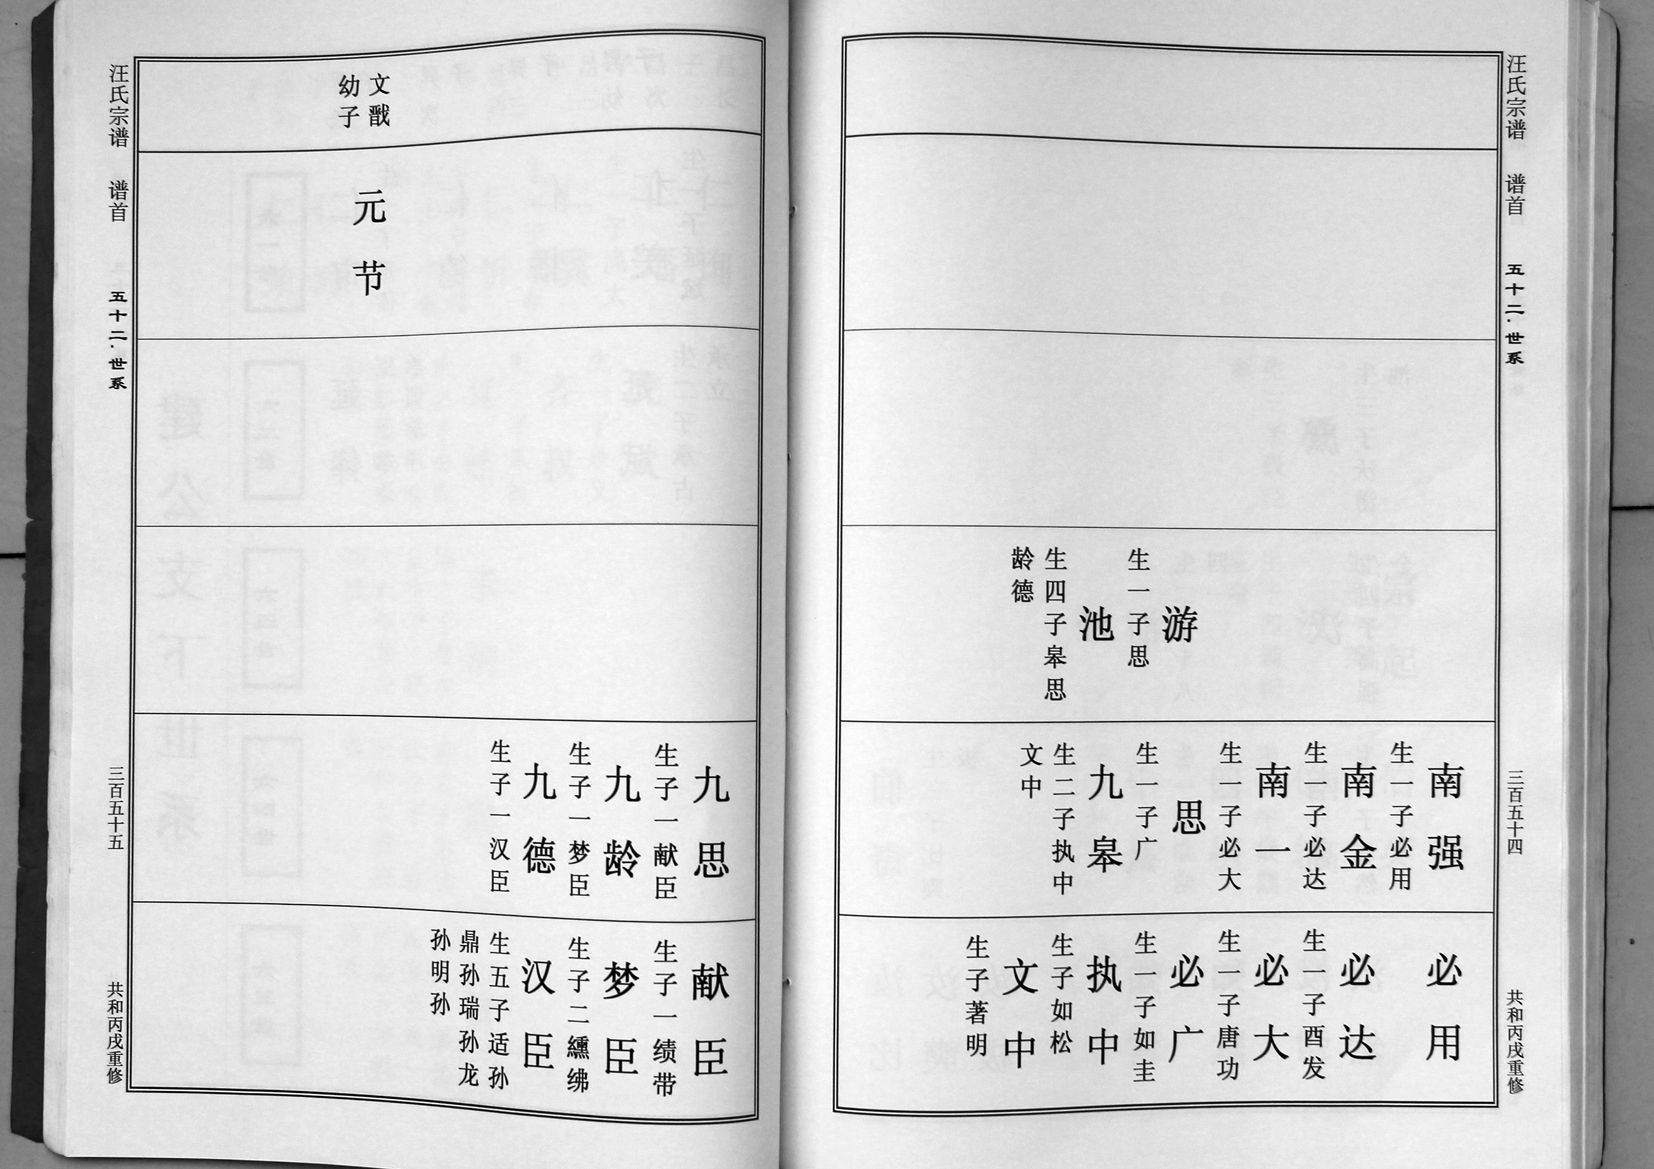 汪氏宗谱 谱首 五十二·世系 三百五十四 共和丙戌重修
游
生一子思
池
生四子皋思
龄德
南强
生一子必用
南金
生一子必达
南一
生一子必大
思
生一子广
九皋
生二子执中
文中
必用
必达
生一子酉发
必大
生一子唐功
必广
生一子如圭
执中
生子如松
文中
生子著明
文戬
幼子
元节
九思
生子一献臣
九龄
生子一梦臣
九德
生子一汉臣
献臣
生子一绩带
梦臣
生子二纁绋
汉臣
生五子适孙
鼎孙瑞孙龙
孙明孙
汪氏宗谱 谱首 五十二·世系 三百五十五 共和丙戌重修